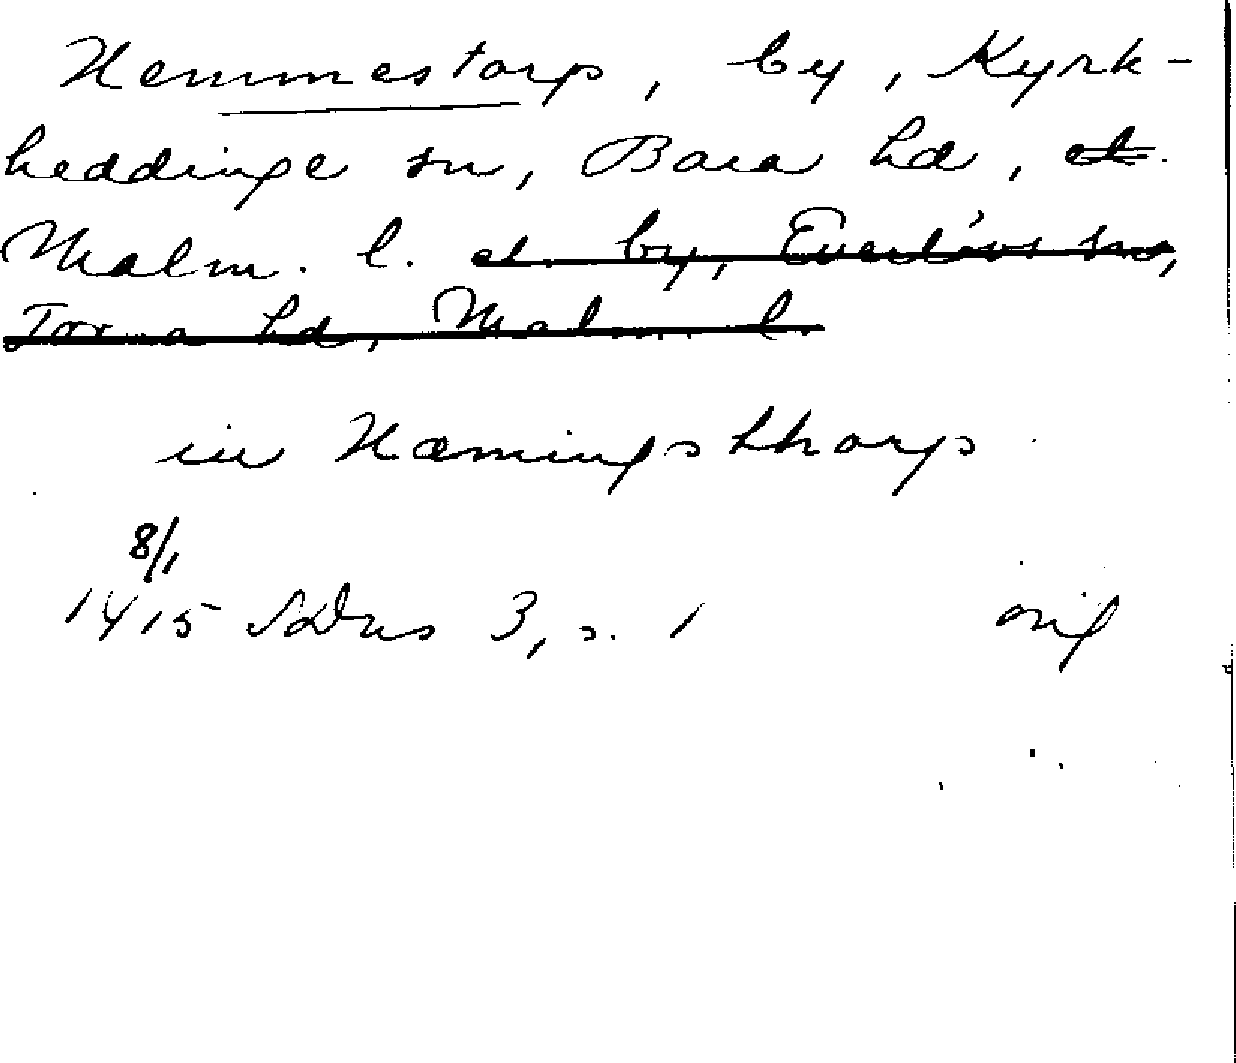 Hemmestorp, by, Kyrk-
heddinge sn, Bara hd, el.
Malm. l. el. by, Everlövs sn,
Torna hd, Malm. l.
in Hæmingsthorp
8/1
1415 SDns 3, s. 1 orig